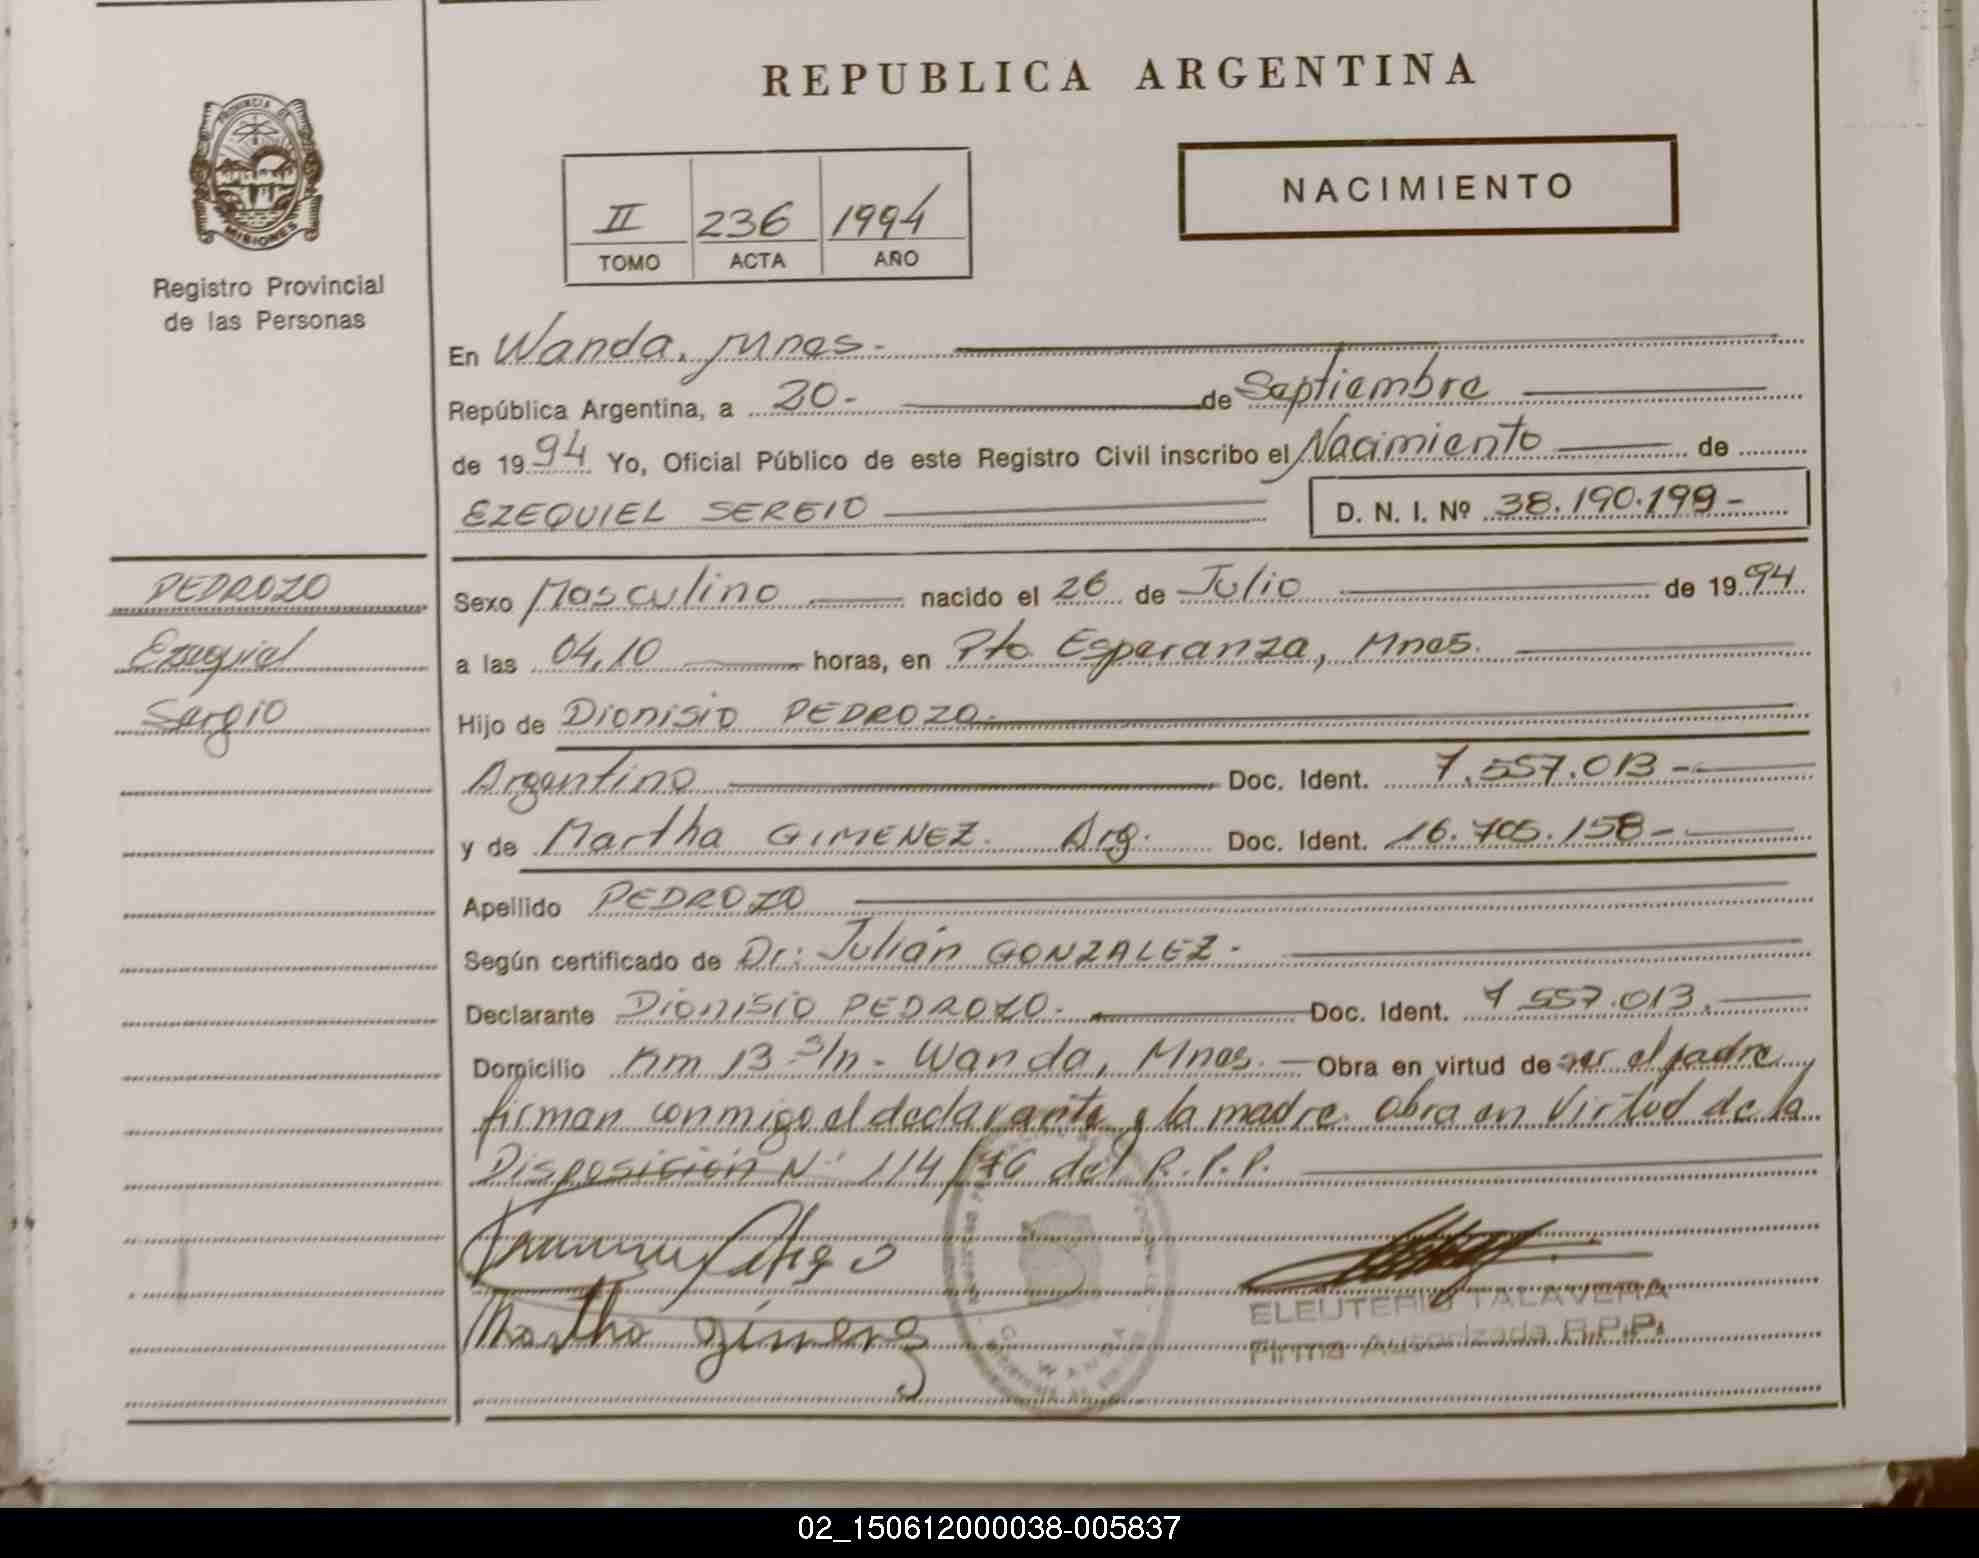 REPUBLICA ARGENTINA
PROVINCIA DE MISIONES
Registro Provincial
de las Personas
NACIMIENTO
II 236 1994
TOMO ACTA AÑO
En Wanda, Mnes.-
República Argentina, a 20.- de Septiembre
de 1994 Yo, Oficial Público de este Registro Civil inscribo el Nacimiento de
EZEQUIEL SERGIO D. N. I. Nº 38.190.199-
PEDROZO
Ezequiel
Sergio
Sexo Masculino nacido el 26 de Julio de 1994
a las 04,10 horas, en Pto. Esperanza, Mnes.
Hijo de Dionisio PEDROZO.-
Argentino Doc. Ident. 7.557.013-
y de Martha GIMENEZ. Arg. Doc. Ident. 16.705.158-
Apellido PEDROZO
Según certificado de Dr: Julián GONZALEZ-
Declarante DIONISIO PEDROZO.- Doc. Ident. 7.557.013.
Domicilio Km 13 S/n - Wanda, Mnes. Obra en virtud de ser el padre
firman conmigo el declarante y la madre. Obra en Virtud de la
Disposición Nº 114/76 del R.P.P.
Martha gimenez
ELEUTERIO TALAVERA
Firma Autorizada R.P.P.
WANDA
02_150612000038-005837